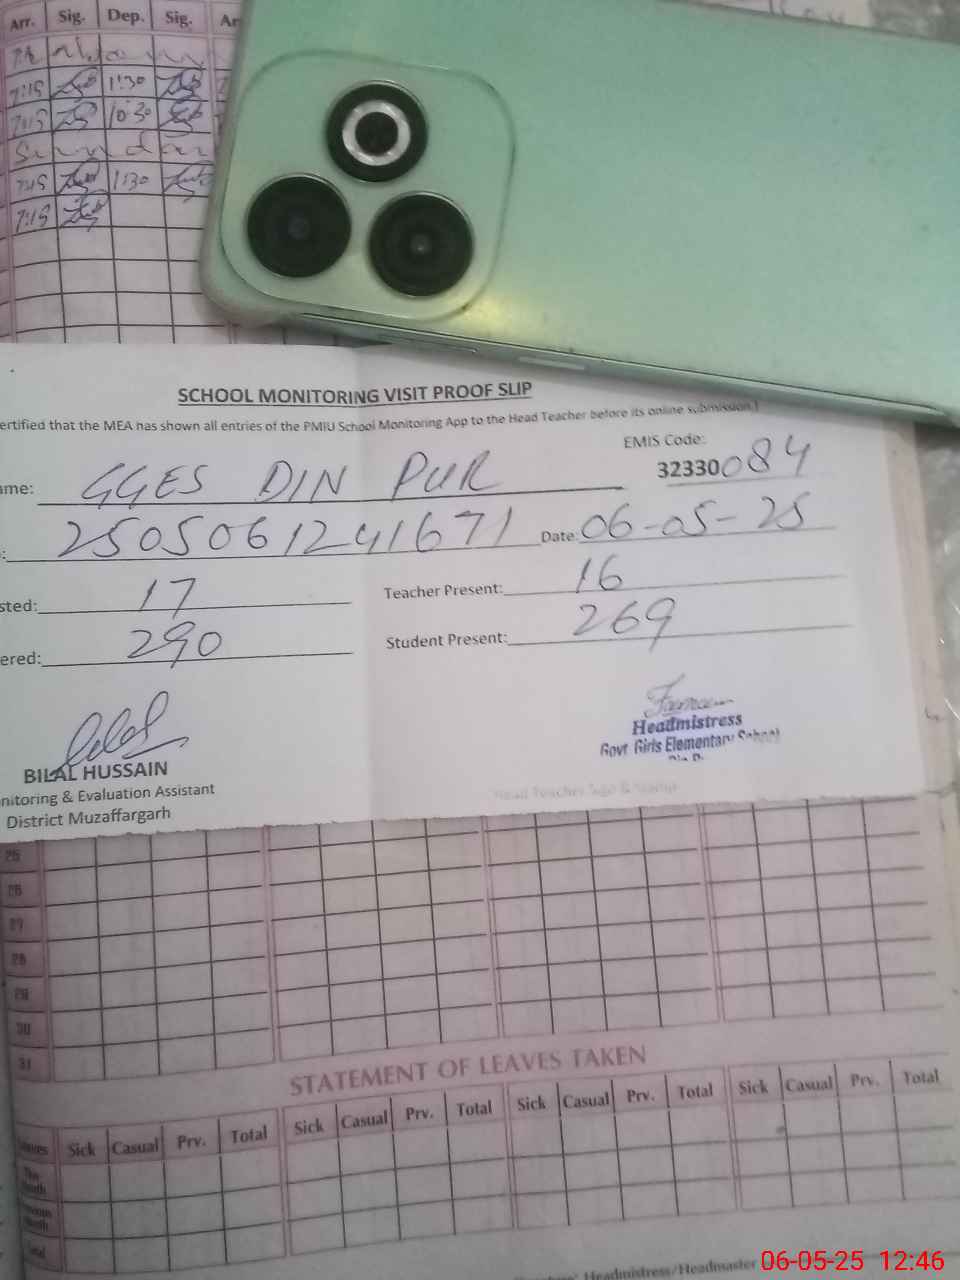 Arr. Sig. Dep. Sig. Ar
7:15 1:30
7:15 10:30
Sunday
7:15 1:30
7:15
SCHOOL MONITORING VISIT PROOF SLIP
ertified that the MEA has shown all entries of the PMIU School Monitoring App to the Head Teacher before its online submission.
EMIS Code:
ame: GGES DIN PUR 32330084
: 2505061241671 Date: 06-05-25
sted: 17 Teacher Present: 16
ered: 290 Student Present: 269
Headmistress
Govt Girls Elementary School
BILAL HUSSAIN
nitoring & Evaluation Assistant
District Muzaffargarh
Head Teacher Sign & Stamp
25
26
27
28
29
30
31
STATEMENT OF LEAVES TAKEN
Sick Casual Prv. Total Sick Casual Prv. Total Sick Casual Prv. Total Sick Casual Prv. Total
Total
Headmistress/Headmaster
06-05-25 12:46